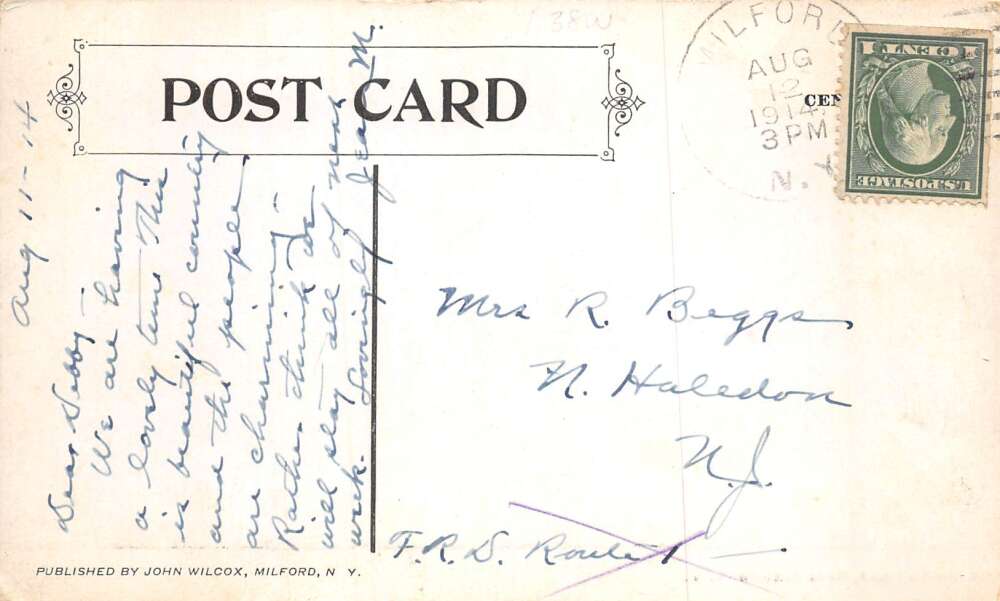 138W
POST CARD
MILFORD
AUG
12
1914
3 PM
N. Y
CEN
1 CENT 1
U.S. POSTAGE
Aug 11-14
Dear Debby -
We are having
a lovely time This
is beautiful country
and the people
are charming -
Rather think we
will stay all of next
week. Lovingly Jean M.
Mrs R. Beggs
N. Haledon
N. J.
F. R. D. Route 1
PUBLISHED BY JOHN WILCOX, MILFORD, N Y.